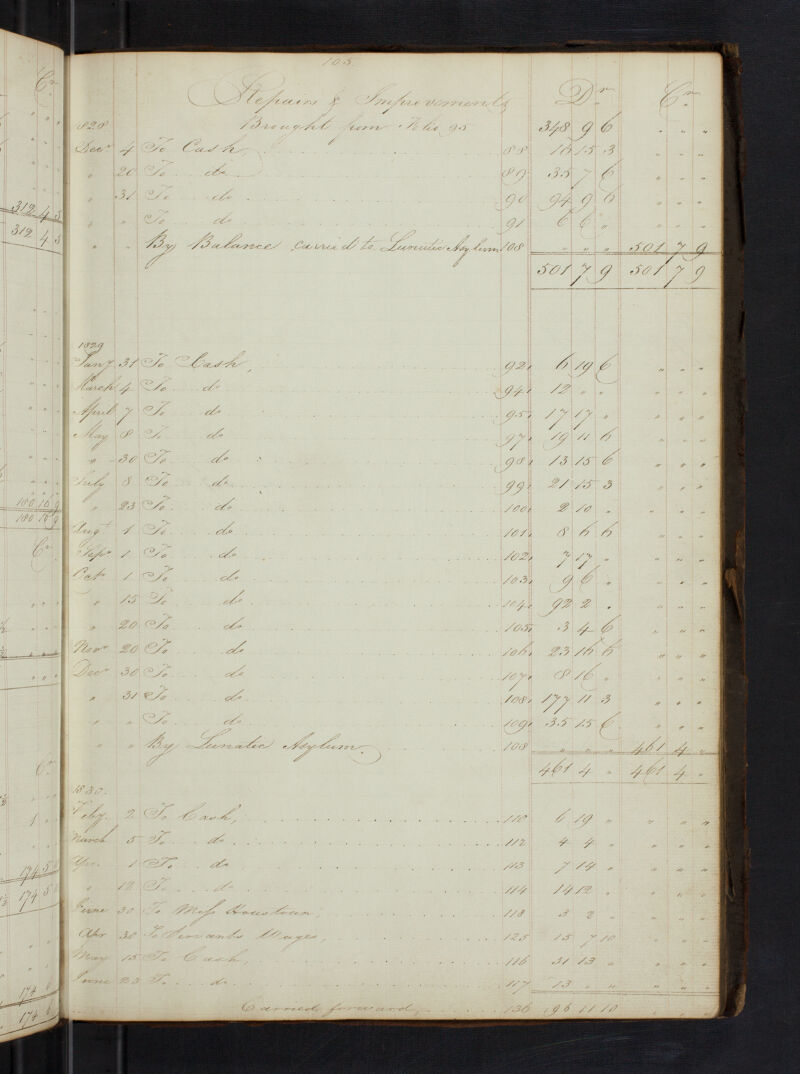 Cr
312 4 5
312 4 5
180 10 9
180 10 9
Cr
Cr
174 5
174 5
174 6
174 6
105
Repairs & Improvements Dr Cr
Brought from Folio 95 348 9 6 " " "
1828
Decr 4 To Cash 88 16 15 3 " " "
" 20 To do 89 35 7 6 " " "
" 31 To do 90 94 9 6 " " "
" " To do 91 6 6 " " " "
" " By Balance carried to Lunatic Asylum 108 " " " 501 7 9
501 7 9 501 7 9
1829
Jany 31 To Cash, 92 6 19 6 " " "
March 4 To do 94 12 " " " " "
April 7 To do 95 17 17 " " " "
May 8 To do 97 19 11 6 " " "
" 30 To do 98 13 15 6 " " "
July 8 To do 99 21 15 3 " " "
" 23 To do 100 2 10 " " " "
Augt 1 To do 101 8 6 6 " " "
Sepr 1 To do 102 7 17 " " " "
Octr 1 To do 103 9 6 " " " "
" 15 To do 104 92 2 " " " "
" 20 To do 105 3 4 6 " " "
Novr 20 To do 106 23 16 6 " " "
Decr 30 To do 107 8 16 " " " "
" 31 To do 108 177 11 3 " " "
" " To do 109 35 15 6 " " "
" " By Lunatic Asylum 108 " " " 461 4 "
461 4 " 461 4 "
1830
Feby 2 To Cash, 110 6 19 " " " "
March 5 To do 112 4 4 " " " "
Apr. 1 To do 113 7 14 " " " "
" 12 To do 114 14 12 " " " "
June 30 To Miss Houstoun 118 3 2 " " " "
Apr 30 To Servants Wages, 125 15 7 10 " " "
May 15 To Cash, 116 31 13 " " " "
June 23 To do 117 13 " " " " "
Carried forward 136 96 11 10